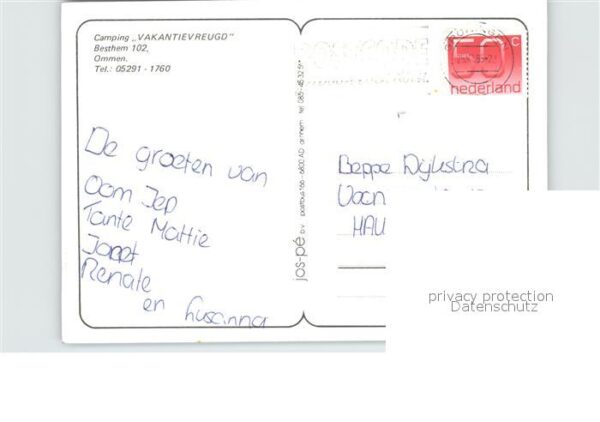 Camping „VAKANTIEVREUGD"
Besthem 102,
Ommen.
Tel.: 05291 - 1760
De groeten van
Oom Jep
Tante Mattie
Janet
Renate
en Susanna
jos-pé b.v. postbus 166 - 6800 AD arnhem
50 c
nederland
Beppe Dijkstra
privacy protection
Datenschutz